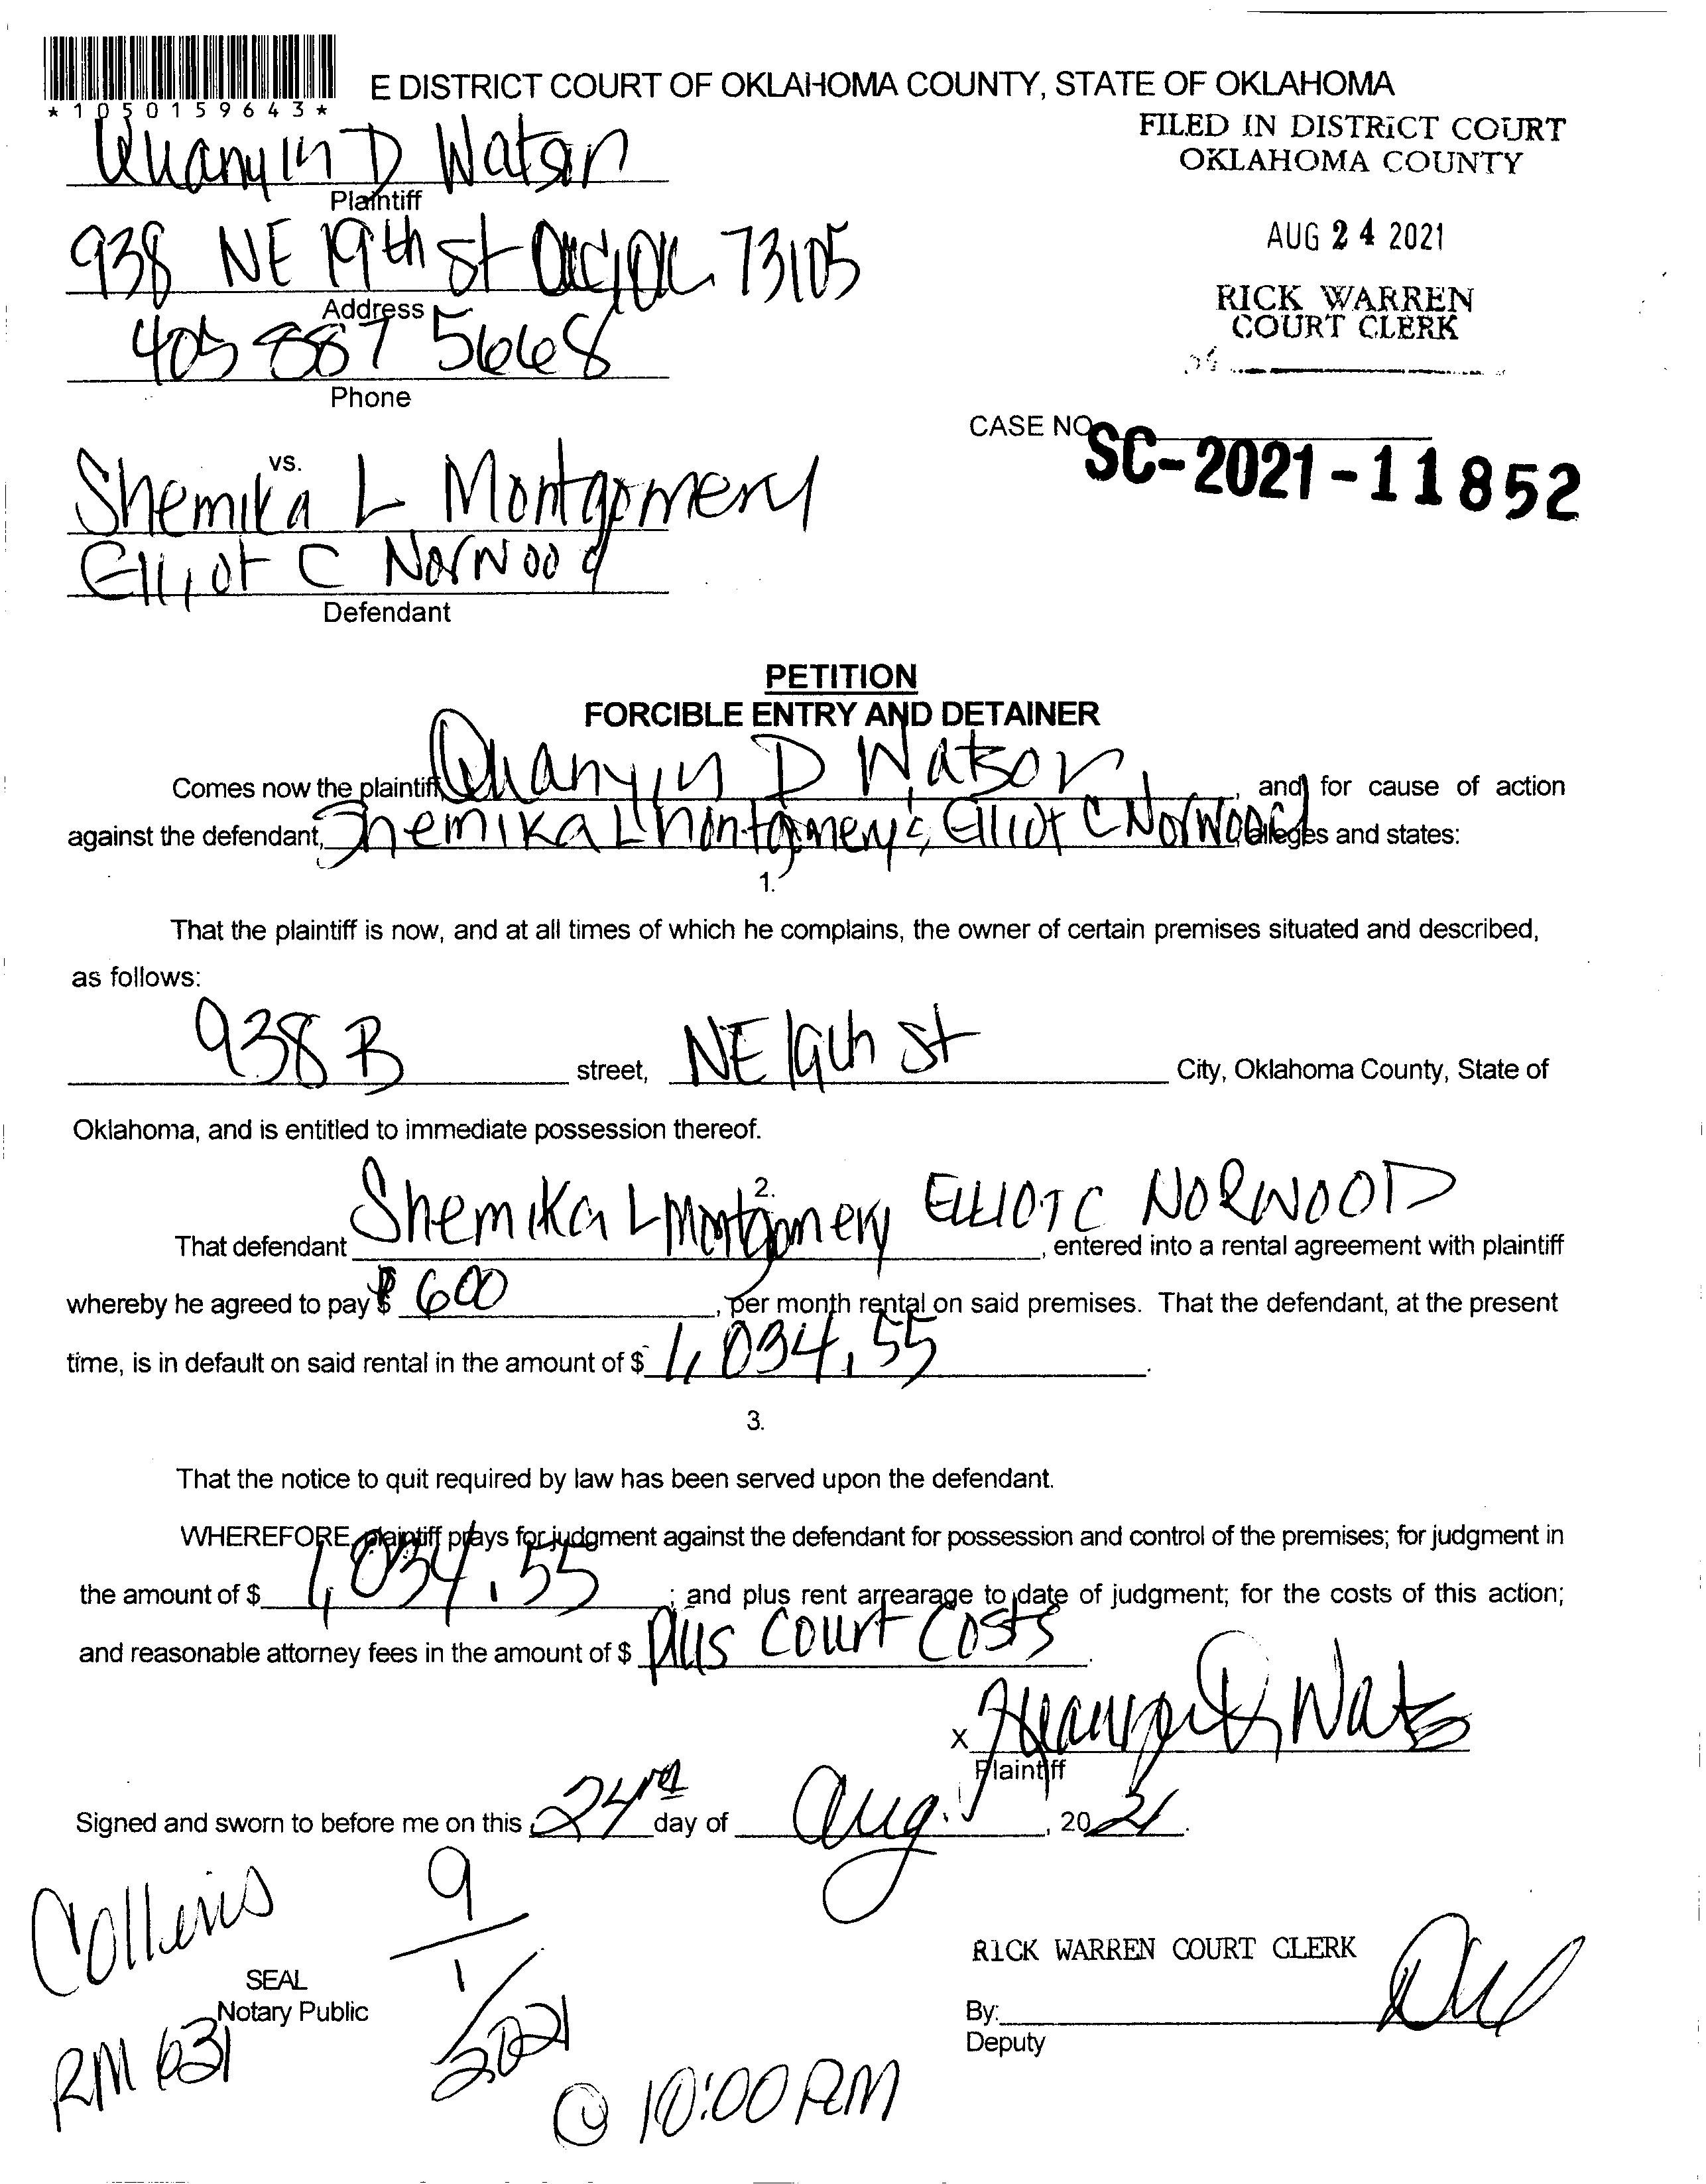 *1050159643*
E DISTRICT COURT OF OKLAHOMA COUNTY, STATE OF OKLAHOMA
FILED IN DISTRICT COURT
OKLAHOMA COUNTY
AUG 24 2021
RICK WARREN
COURT CLERK
Quanyin D Watson
Plaintiff
938 NE 19th St OKC, OK 73105
Address
405 887 5668
Phone
CASE NO.
SC-2021-11852
vs.
Shemika L Montgomery
Elliot C Norwood
Defendant
PETITION
FORCIBLE ENTRY AND DETAINER
Comes now the plaintiff, Quanyin D Watson, and for cause of action
against the defendant, Shemika L Montgomery & Elliot C Norwood alleges and states:
1.
That the plaintiff is now, and at all times of which he complains, the owner of certain premises situated and described,
as follows:
938 B street, NE 19th St City, Oklahoma County, State of
Oklahoma, and is entitled to immediate possession thereof.
2.
That defendant Shemika L Montgomery ELLIOT C NORWOOD, entered into a rental agreement with plaintiff
whereby he agreed to pay $ 600, per month rental on said premises. That the defendant, at the present
time, is in default on said rental in the amount of $ 1,034.55.
3.
That the notice to quit required by law has been served upon the defendant.
WHEREFORE, plaintiff prays for judgment against the defendant for possession and control of the premises; for judgment in
the amount of $ 1,034.55; and plus rent arrearage to date of judgment; for the costs of this action;
and reasonable attorney fees in the amount of $ Plus Court Costs.
X
Plaintiff
Signed and sworn to before me on this 24 day of Aug., 2021.
9/1/2021
SEAL
Notary Public
RM 631
@ 10:00 AM
RICK WARREN COURT CLERK
By:
Deputy